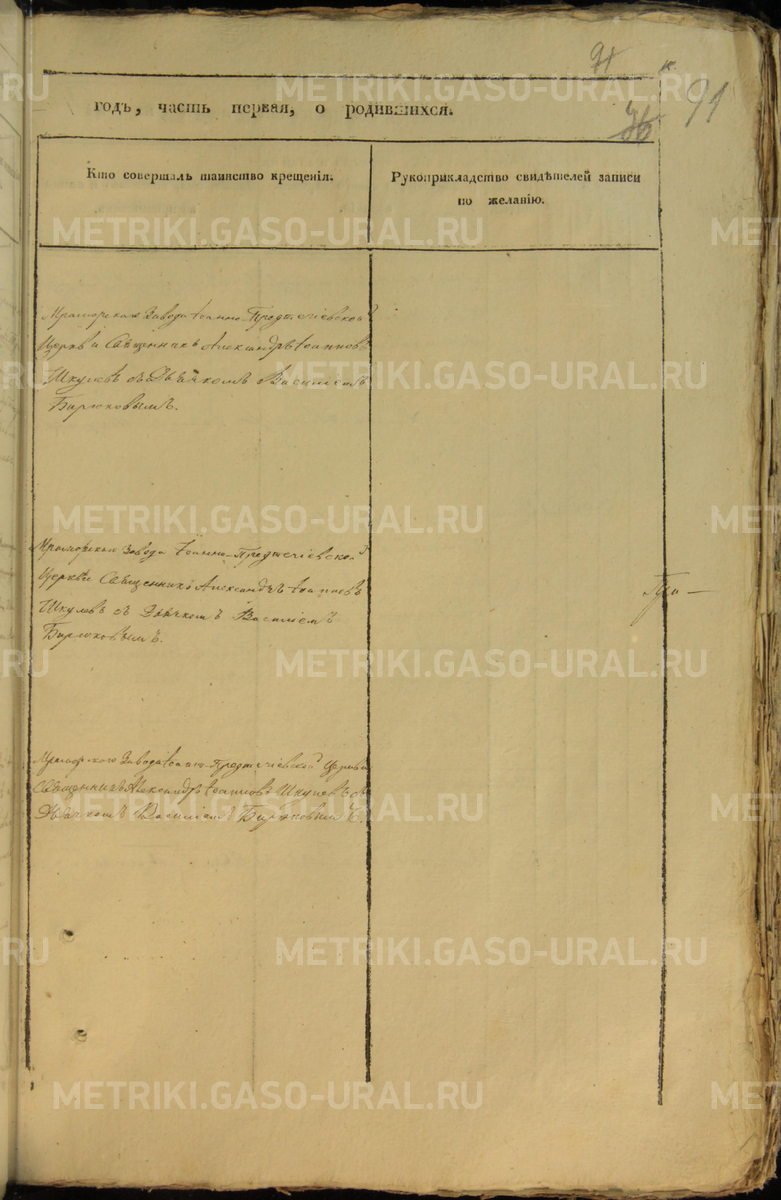 91
годъ, часть первая, о родившихся.
91
Кто совершалъ таинство крещенія.
Рукоприкладство свидѣтелей записи
по желанію.
Мраморскаго Завода Іоанно-Предтечіевской
Церкви Священникъ Александръ Іоанновъ
Шкулевъ съ Дьячкомъ Василіемъ
Бирюковымъ.
Мраморскаго Завода Іоанно-Предтечіевской
Церкви Священникъ Александръ Іоанновъ
Шкулевъ съ Дьячкомъ Василіемъ
Бирюковымъ.
Мраморскаго Завода Іоанно-Предтечіевской Церкви
Священникъ Александръ Іоанновъ Шкулевъ съ
Дьячкомъ Василіемъ Бирюковымъ.
METRIKI.GASO-URAL.RU